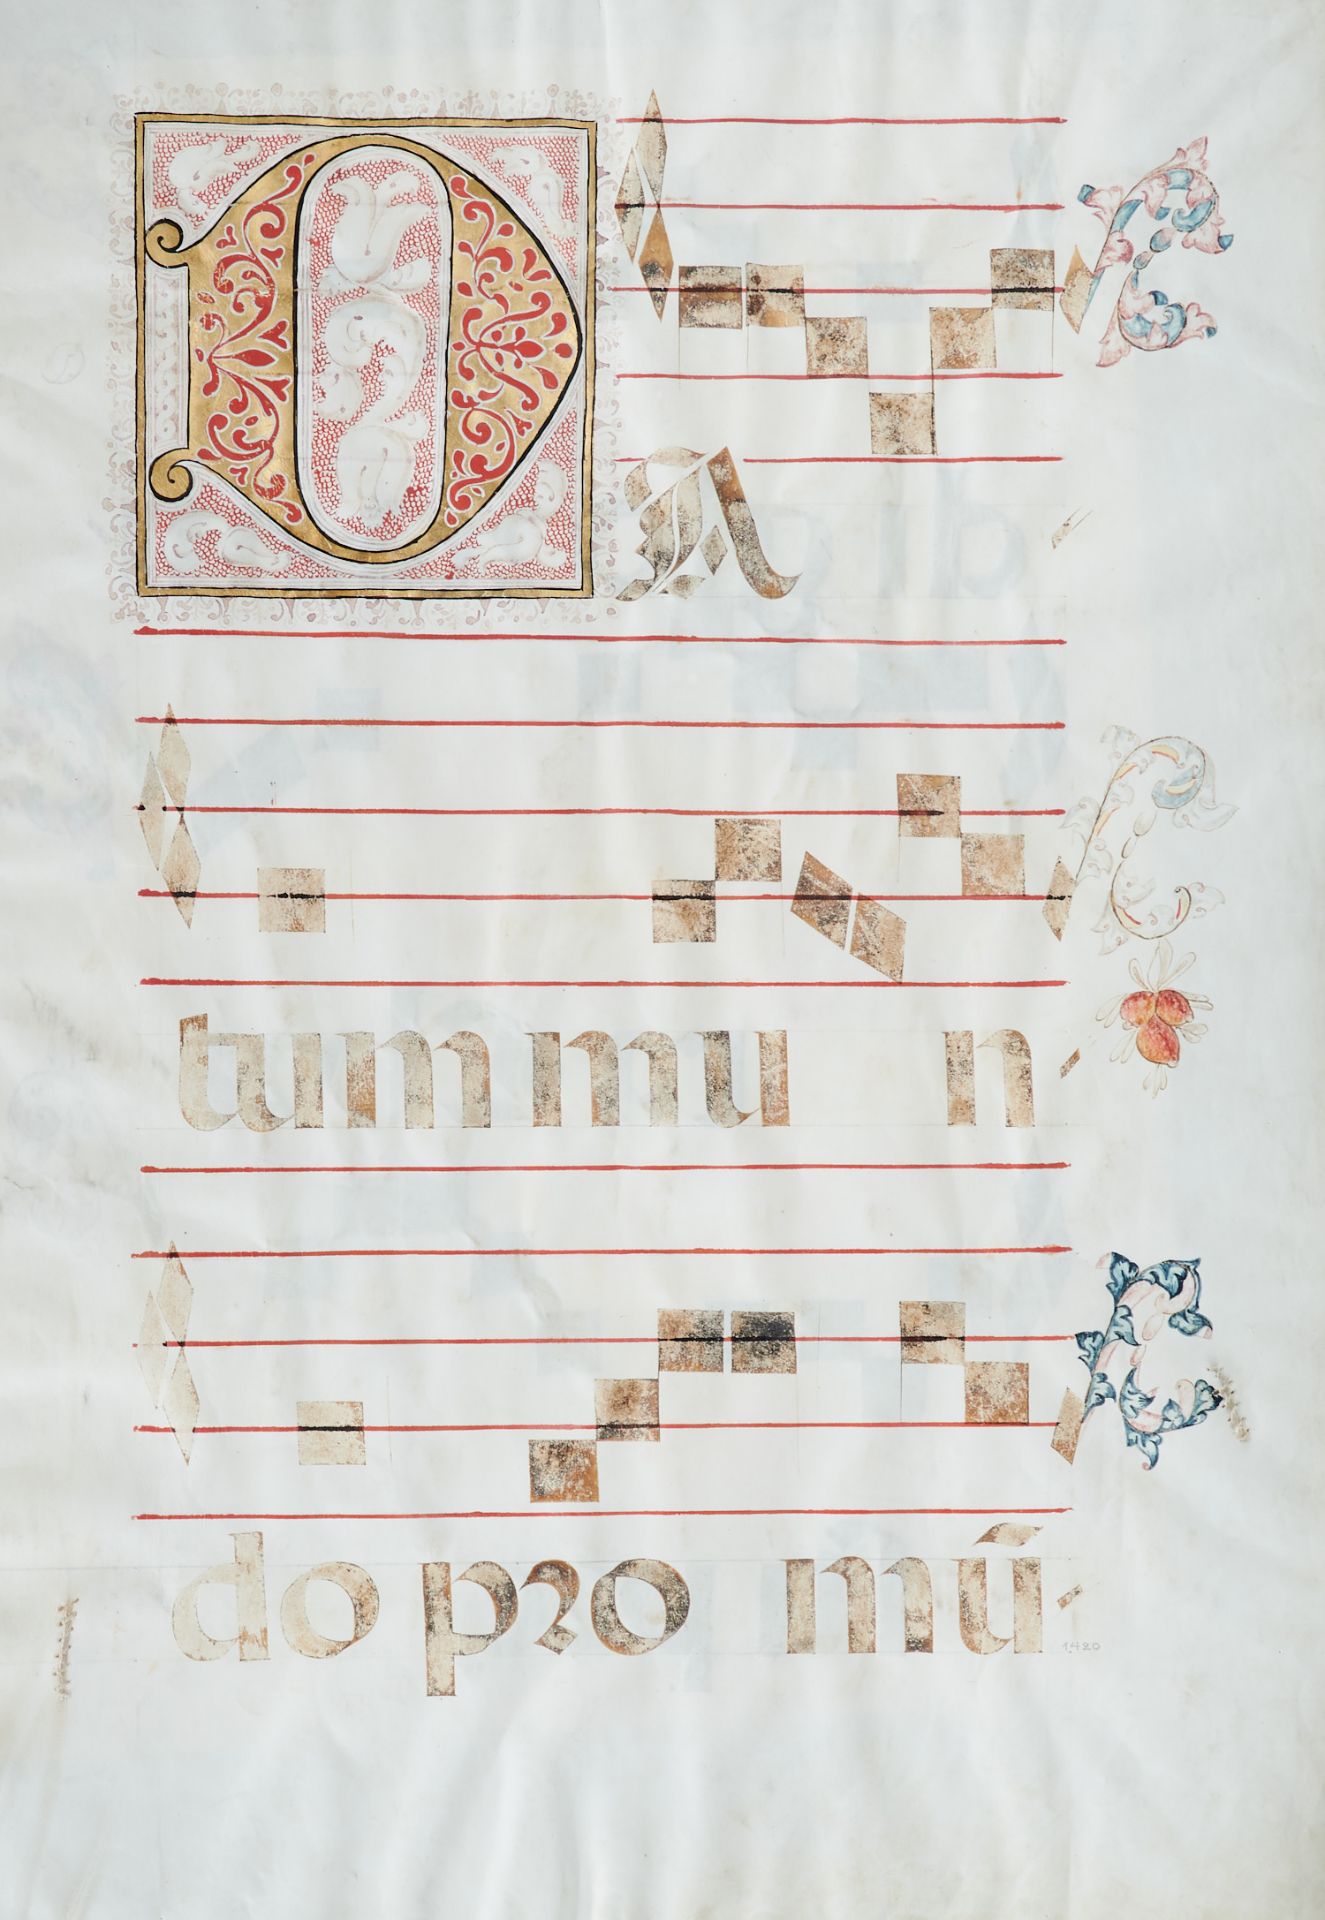 DA
tum mu n-
do pro mū-
1420